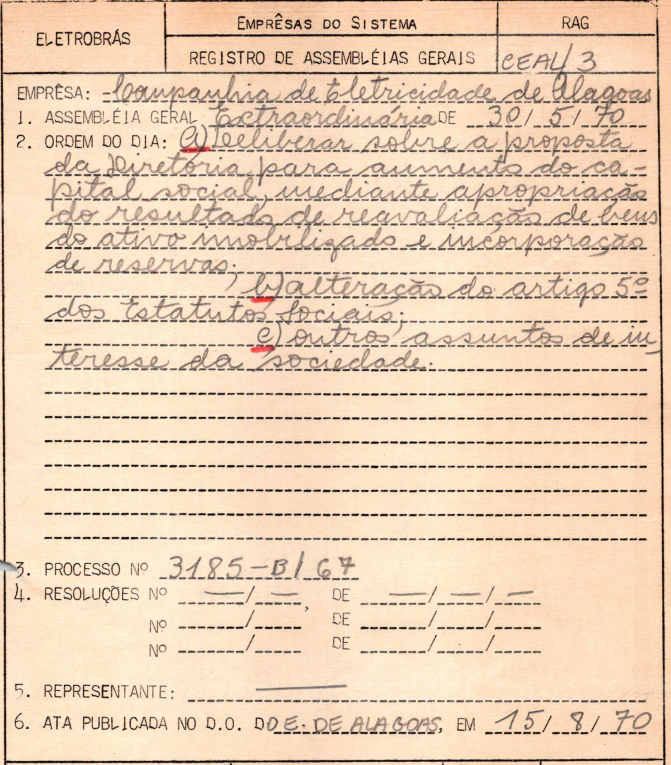 ELETROBRÁS
EMPRÊSAS DO SISTEMA
RAG
REGISTRO DE ASSEMBLÉIAS GERAIS
CEAL/3
EMPRÊSA: Companhia de Eletricidade de Alagoas
1. ASSEMBLÉIA GERAL Extraordinária DE 30/5/70
2. ORDEM DO DIA: a) Deliberar sobre a proposta
da Diretória para aumento do ca-
pital social, mediante apropriação
do resultado de reavaliação de bens
do ativo imobilizado e incorporação
de reservas;
b) alteração do artigo 5º
dos Estatutos Sociais;
c) outros assuntos de in-
teresse da sociedade.
3. PROCESSO Nº 3185-B/67
4. RESOLUÇÕES Nº —/—, DE —/—/—
Nº / DE / /
Nº / DE / /
5. REPRESENTANTE: —
6. ATA PUBLICADA NO D.O. DO E. DE ALAGOAS, EM 15/8/70